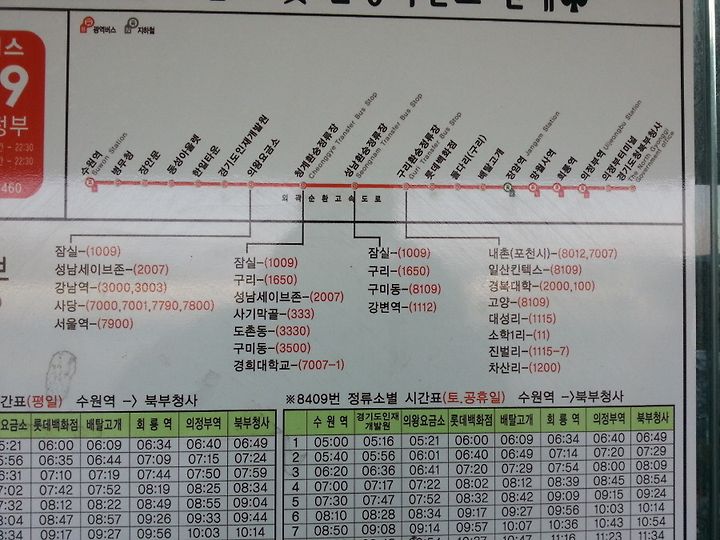 광역버스 지하철
스
9
정부
22:30
22:30
460
수원역 Suwon Station
병무청
장안문
동성아울렛
한일타운
경기도인재개발원
의왕요금소
청계환승정류장 Cheonggye Transfer Bus Stop
성남환승정류장 Seongnam Transfer Bus Stop
구리환승정류장 Guri Transfer Bus Stop
롯데백화점
돌다리(구리)
배탈고개
장암역 Jangam Station
망월사역
회룡역
의정부역 Uijeongbu Station
의정부터미널
경기도청북부청사 The North Gyeonggi Government office
외곽순환고속도로
잠실-(1009)
성남세이브존-(2007)
강남역-(3000,3003)
사당-(7000,7001,7790,7800)
서울역-(7900)
잠실-(1009)
구리-(1650)
성남세이브존-(2007)
사기막골-(333)
도촌동-(3330)
구미동-(3500)
경희대학교-(7007-1)
잠실-(1009)
구리-(1650)
구미동-(8109)
강변역-(1112)
내촌(포천시)-(8012,7007)
일산킨텍스-(8109)
경북대학-(2000,100)
고양-(8109)
대성리-(1115)
소학1리-(11)
진벌리-(1115-7)
차산리-(1200)
간표(평일) 수원역 -> 북부청사
요금소 롯데백화점 배탈고개 회룡역 의정부역 북부청사
5:21 06:00 06:09 06:34 06:40 06:49
5:56 06:35 06:44 07:09 07:15 07:24
6:31 07:10 07:19 07:44 07:50 07:59
7:02 07:42 07:52 08:19 08:25 08:34
7:32 08:12 08:22 08:49 08:55 09:04
8:04 08:47 08:57 09:26 09:33 09:44
8:34 09:17 09:27 09:56 10:03 10:14
※8409번 정류소별 시간표(토.공휴일) 수원역 ->북부청사
수원역 경기도인재개발원 의왕요금소 롯데백화점 배탈고개 회룡역 의정부역 북부청사
1 05:00 05:16 05:21 06:00 06:09 06:34 06:40 06:49
2 05:40 05:56 06:01 06:40 06:49 07:14 07:20 07:29
3 06:20 06:36 06:41 07:20 07:29 07:54 08:00 08:09
4 07:00 07:17 07:22 08:02 08:12 08:39 08:45 08:54
5 07:30 07:47 07:52 08:32 08:42 09:09 09:15 09:24
6 08:10 08:28 08:34 09:17 09:27 09:56 10:03 10:14
7 08:50 09:08 09:14 09:57 10:07 10:36 10:43 10:54